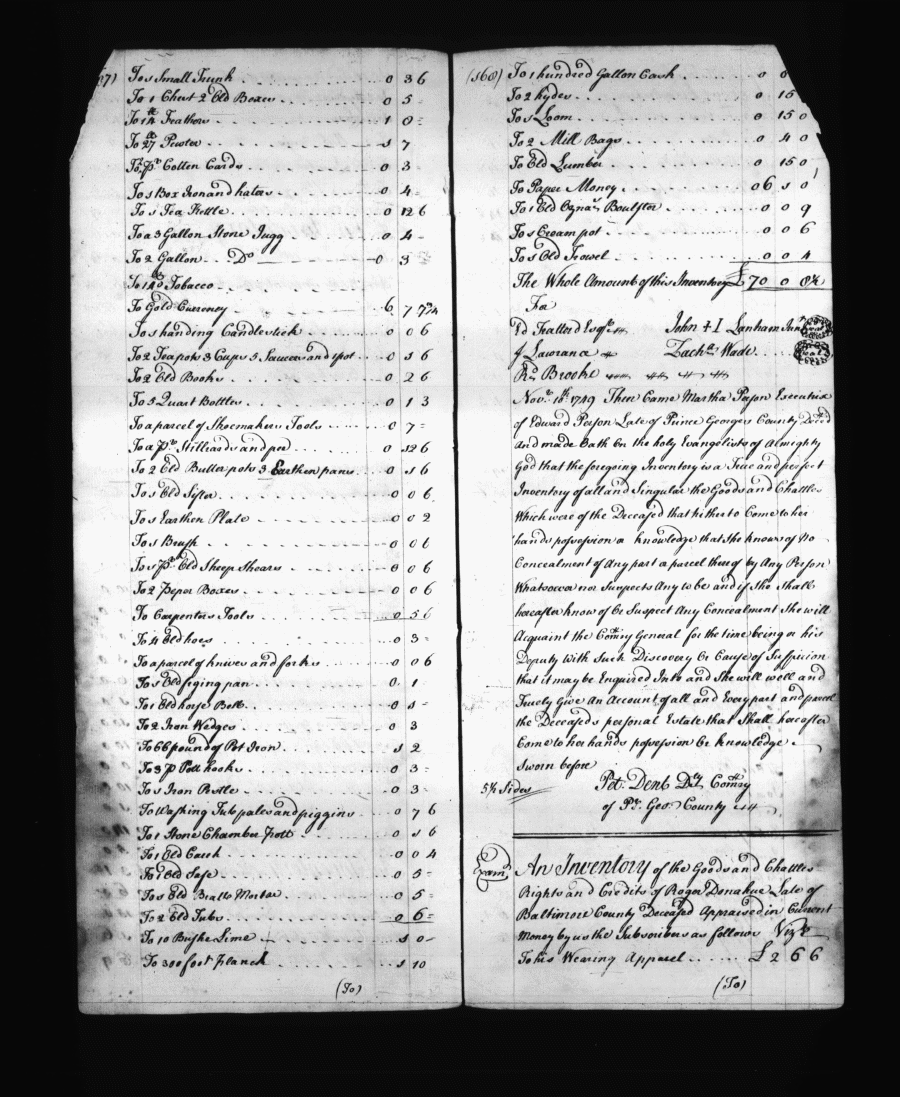 7)
To 1 Small Trunk . . . 0 3 6
To 1 Chest 2 Old Boxes . . . 0 5 -
To 14 lb Feathers . . . 1 8 -
To 27 lb Pewter . . . 1 7
To 2 pr Cotten Cards . . . 0 3 -
To 1 Box Iron and heaters . . . 0 4 -
To 1 Tea Kettle . . . 0 12 6
To a 3 Gallon Stone Jugg . . . 0 4 -
To 2 Gallon Do . . . 0 3 -
Tobacco
To Gold Currency . . . 6 7
To 1 handing Candlestick . . . 0 0 6
To 2 Teapots 3 Cups 5 Saucers and 1 pot . . . 0 1 6
To 2 Old Books . . . 0 2 6
To 5 Quart Bottles . . . 0 1 3
To a parcel of Shoemakers Tools . . . 0 7 -
To a pr Stilliards and pee . . . 0 12 6
To 2 Old Butter pots 3 Earthen panns . . . 0 1 6
To 1 Old Sifter . . . 0 0 6
To 1 Earthen Plate . . . 0 0 2
To 1 Brush . . . 0 0 6
To 1 pr Old Sheep Shears . . . 0 0 6
To 2 Peper Boxes . . . 0 0 6
To Carpenters Tools . . . 0 5 6
To 4 Old hoes . . . 0 3 -
To a parcel of knives and forks . . . 0 0 6
To 1 Old friging pan . . . 0 1
To 1 Old horse Bell . . . 0 1 -
To 2 Iron Wedges . . . 0 3
To 66 pound of Pot Iron . . . 1 2
To 3 p Pott hooks . . . 0 3 -
To 1 Iron Pestle . . . 0 3 -
To Washing Tub pales and piggins . . . 0 7 6
To 1 Stone Chamber pott . . . 0 1 6
To 1 Old . . . 0 0 4
To 1 Old Safe . . . 0 5 -
To 1 Old Mortar . . . 0 5 -
To 2 Old Tubs . . . 0 6 -
To 10 Bushe Lime . . . 1 0 -
To 300 foot planck . . . 1 10
(To)
(168)
To 1 hundred Gallon Cask . . . 0 0
To 2 hydes . . . 0 15
To 1 Loom . . . 0 15 0
To 2 Mill Bags . . . 0 4 0
To Old Lumber . . . 0 15 0
To Paper Money . . . 0 6 1 0
To 1 Old Oznas Boulster . . . 0 0 9
To 1 Cream pot . . . 0 0 6
To 1 Old Trowel . . . 0 0 4
The Whole Amount of this Inventory £ 70 0
John + I Lanham Junr Seal
J Lawrance Zachs Wade Seal
Rd Brooke
Novr 10th 1749 Then Came Martha Person Executrix
of Edward Person Late of Prince Georges County Deced
and made Oath On the holy Evangelists of Almighty
God that the foregoing Inventory is a True and perfect
Inventory of all and Singular the Goods and Chattles
Which were of the Deceased that hitherto Come to her
hands possession a knowledge that She knows of No
Concealment of Any part a parcel thereof by Any Person
Whatsoever nor Suspects Any to be and if She Shall
hereafter know of Or Suspect Any Concealment She will
Acquaint the Comry General for the time being or his
Deputy With Such Discovery Or Cause of Suspicion
that it may be Enquired Into and She will well and
Truely give An Account of all and Every part and parcel
the Deceaseds personal Estate that Shall hereafter
Come to her hands possession Or knowledge
Sworn before
5½ Sides
Pet. Dent Dty Comry
of Pr. Geos County
Examd
An Inventory of the Goods and Chattles
Rights and Credits of Roger Donahue Late of
Baltimore County Deceased Appraised in Current
Money by us the Subscribers as follows Vizt
To his Wearing Apparel . . . £ 2 6 6
(To)